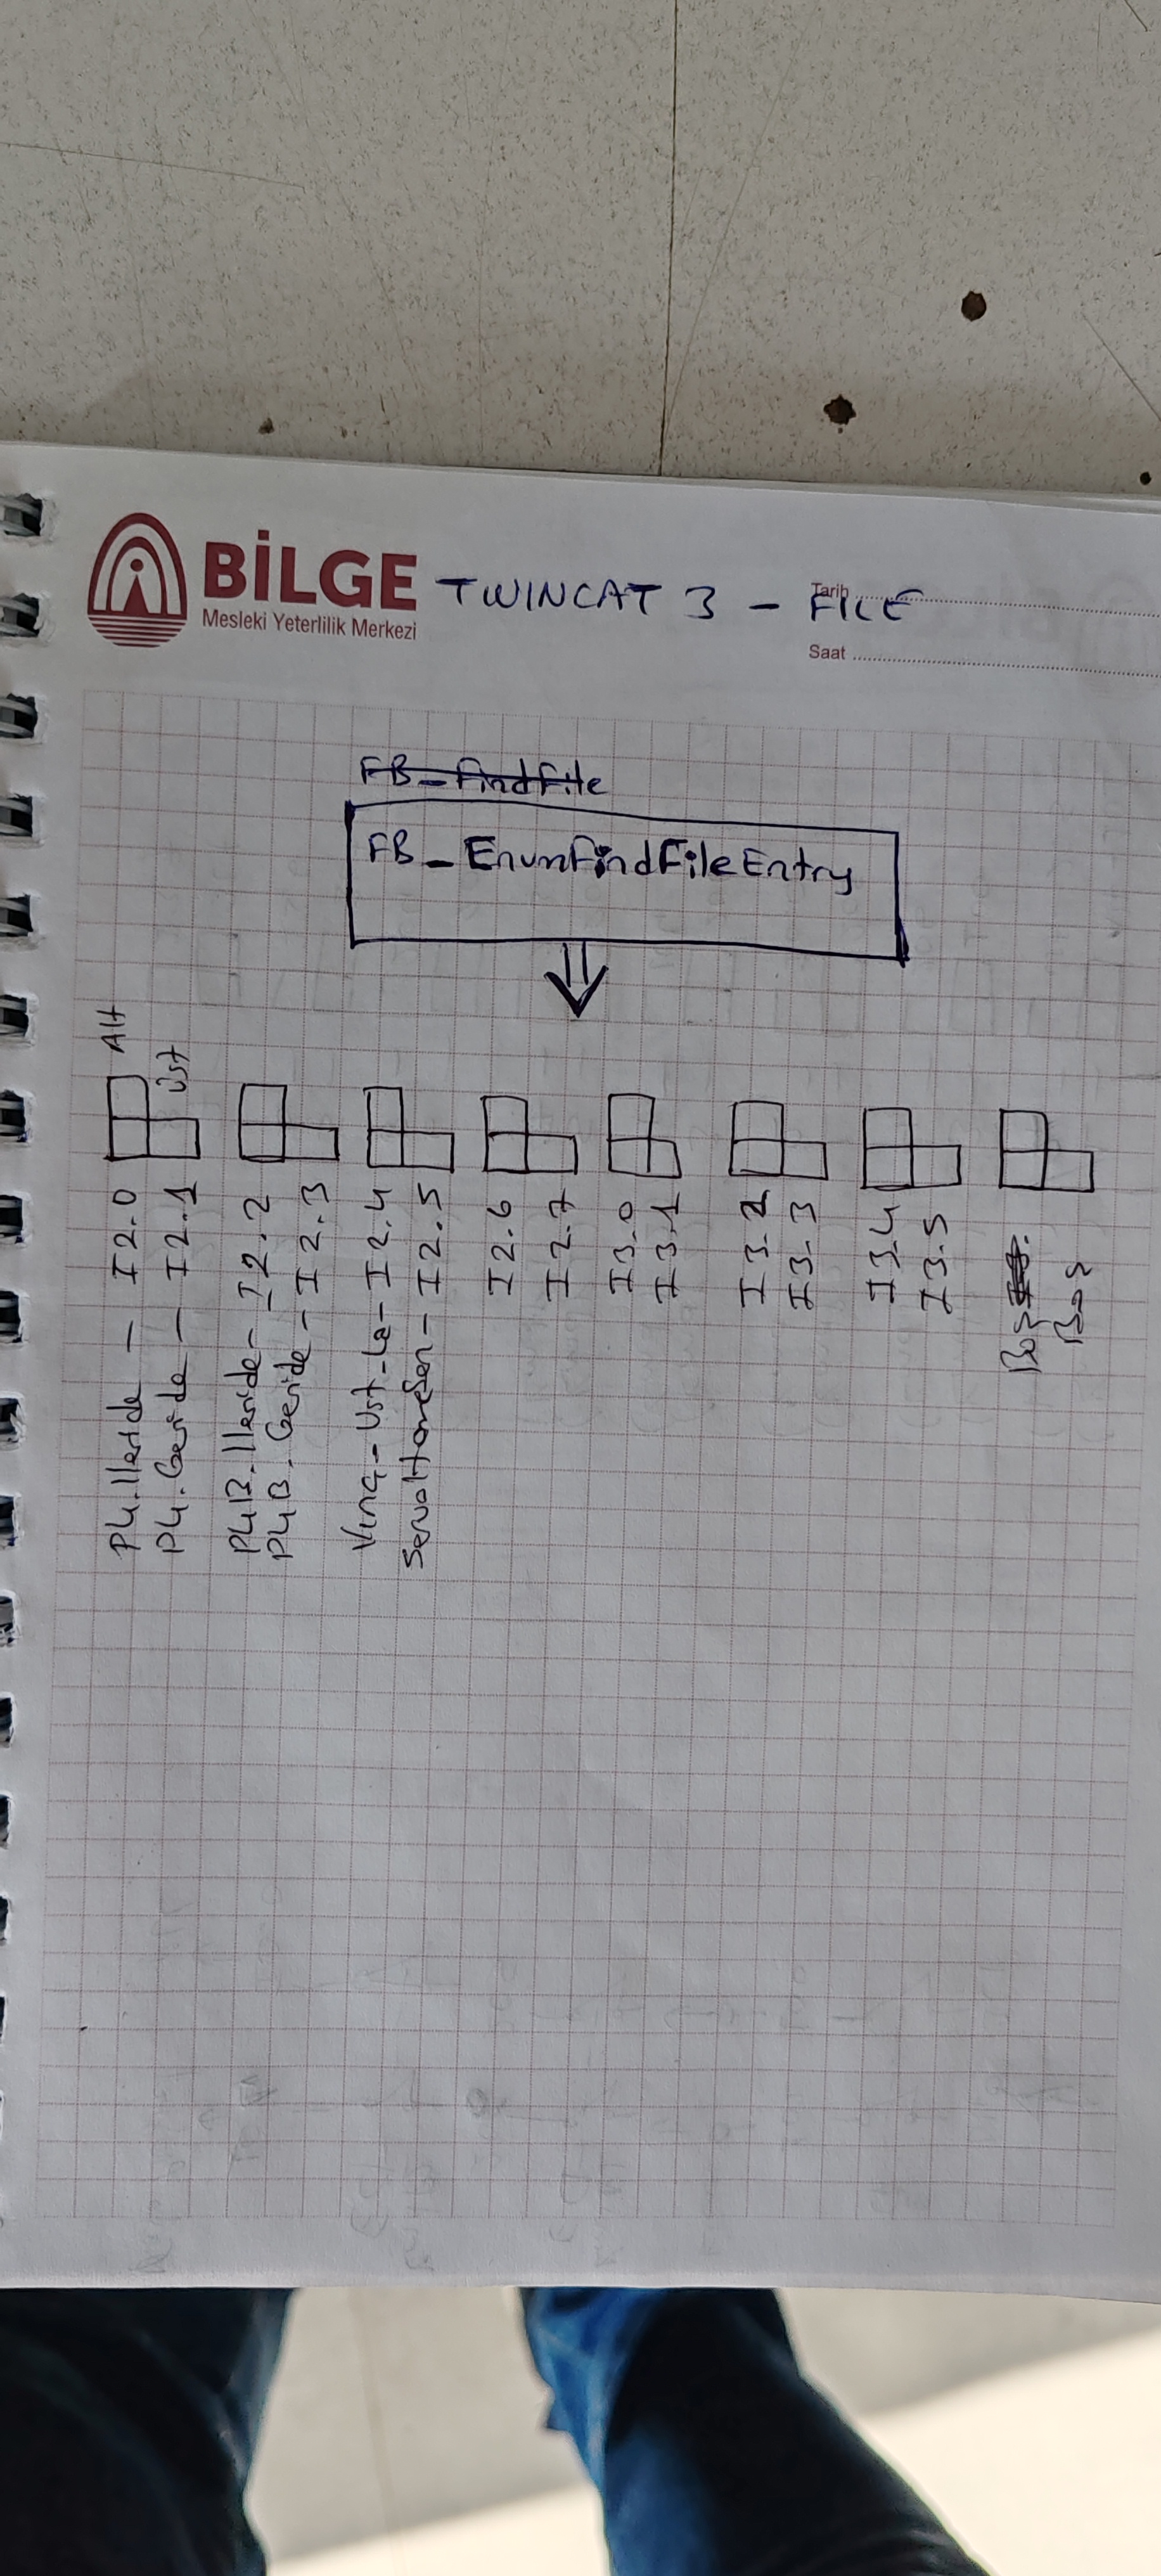 BİLGE
Mesleki Yeterlilik Merkezi
TWINCAT 3 - FILE
Tarih
Saat
FB_FindFile
FB_EnumFindFileEntry
Alt
Üst
P4.İleride - I2.0
P4.Geride - I2.1
P4B.İleride - I2.2
P4B.Geride - I2.3
Vinç-Ust-La - I2.4
ServoHomeSen - I2.5
I2.6
I2.7
I3.0
I3.1
I3.2
I3.3
I3.4
I3.5
Boş
Boş